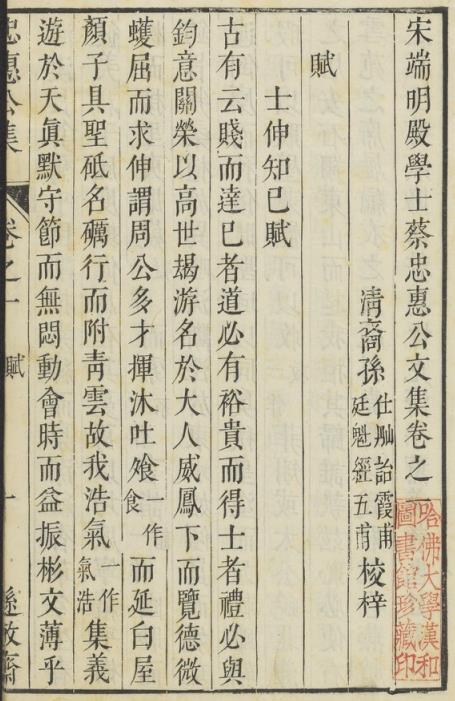 宋端明殿學士蔡忠惠公文集卷之一
清裔孫 仕舢詒霞甫 廷魁經五甫 梭梓
賦
士伸知已賦
古有云賤而達已者道必有裕貴而得士者禮必與
鈞意關榮以高世朅游名於大人威鳳下而覽德微
蠖屈而求伸謂周公多才揮沐吐飧一作食而延白屋
顏子具聖砥名礪行而附青雲故我浩氣一作氣浩集義
遊於天眞默守節而無悶動會時而益振彬文薄乎
忠惠公集 卷之一 賦 一 遜敏齋
哈佛大學漢和圖書館珍藏印